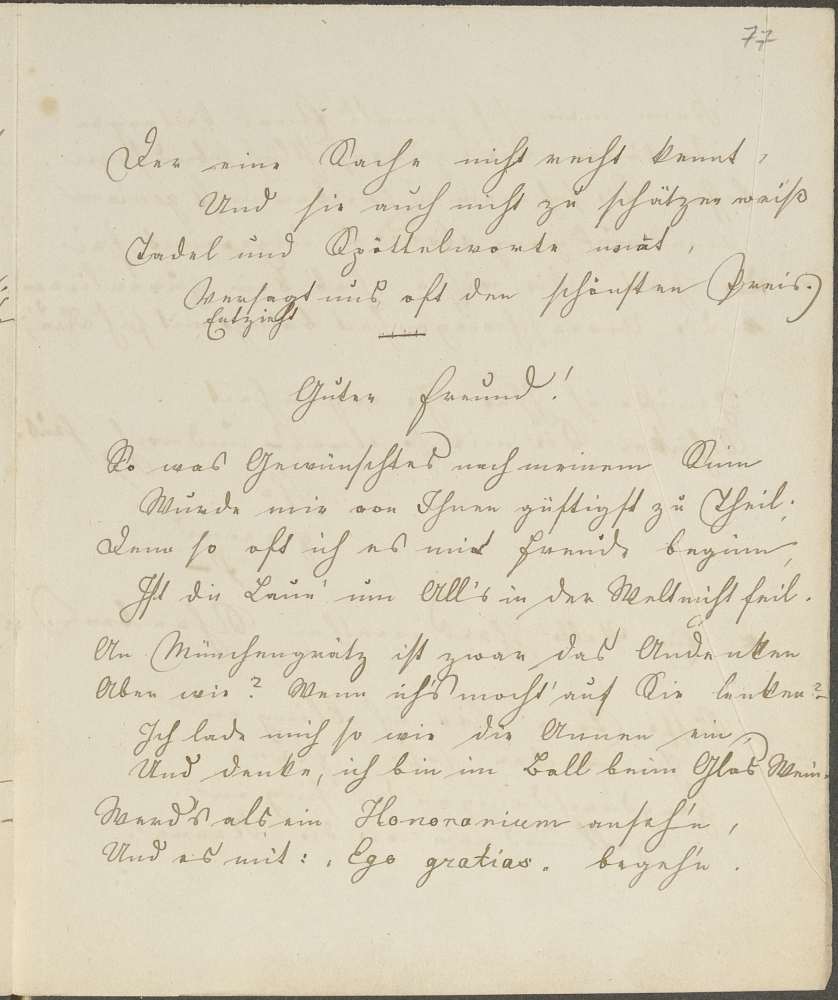 77
Der eine Sache nicht recht kennt,
Und sie auch nicht zu schätzen weiß
Tadel und Spöttelworte
Versagt uns oft den schönsten Preis.)
Entzieht
Guter Freund!
So was Gewünschtes nach meinem Sinn
Wurde mir von Ihnen gütigst zu Theil.
Denn so oft ich es mit Freude beginn,
Ist die Laun' um All's in der Welt nicht feil.
An Münchengrätz ist zwar das Andenken
Aber wie? Wenn ich's mocht' auf Sie lenken?
Ich lade mich so wie die Annen ein,
Und denke, ich bin im Ball beim Glas Wein.
Werd's als ein Honoranium anseh'n,
Und es mit: „Ego gratias" begeh'n.